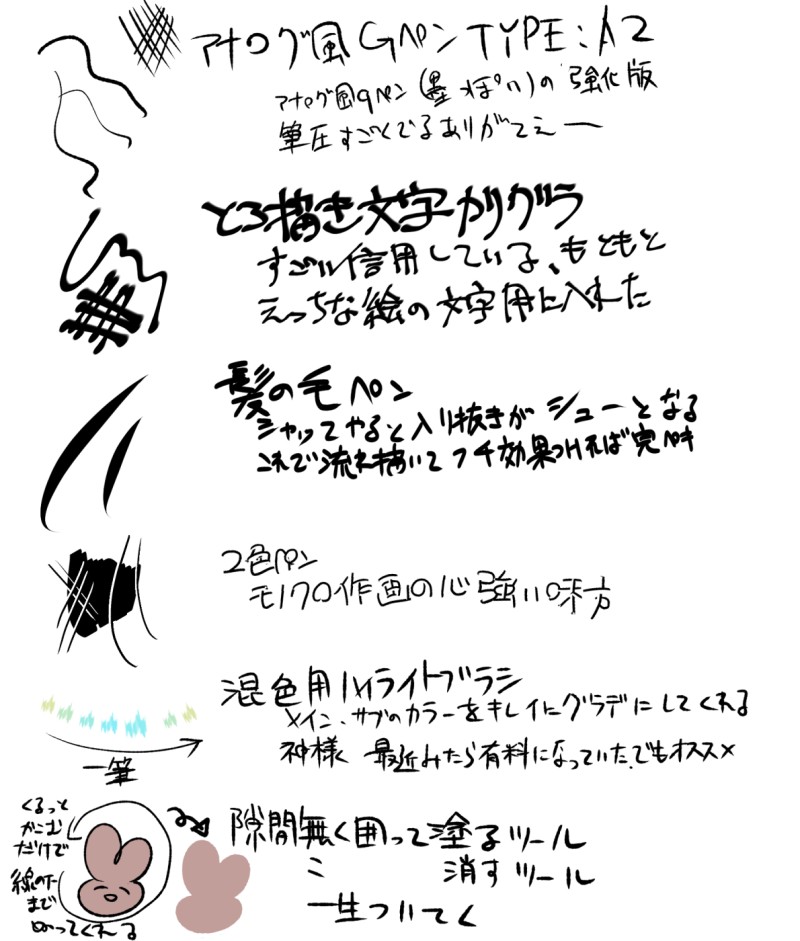 アナログ風GペンTYPE:A2
アナログ風Gペン(墨っぽい)の強化版
筆圧すごくでるありがてえー
とろ描き文字カリグラ
すごい信用している、もともと
えっちな絵の文字用に入れた
髪の毛ペン
シャッてやると入り抜きがシューとなる
これで流れ描いてフチ効果つければ完ペキ
2色ペン
モノクロ作画の心強い味方
混色用ハイライトブラシ
メイン、サブのカラーをキレイにグラデにしてくれる
神様 最近みたら有料になっていた、でもオススメ
一筆
くるっと
かこむ
だけで
線の下
まで
ぬってくれる
隙間無く囲って塗るツール
〃 消すツール
一生ついてく